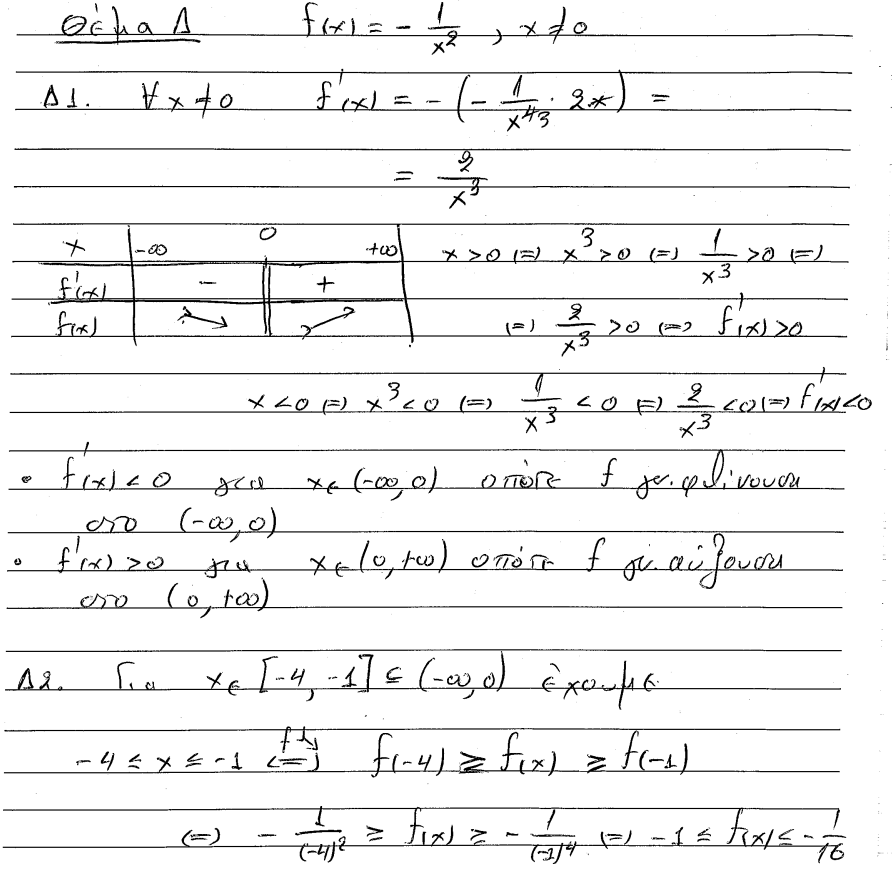 Θέμα Δ f(x) = - 1/x² , x ≠ 0
Δ1. ∀x ≠ 0 f'(x) = - ( - 1/x⁴³ · 2x ) =
= 2/x³
x | -∞ 0 +∞
f'(x) | - || +
f(x) | ↘ || ↗
x > 0 (=) x³ > 0 (=) 1/x³ > 0 (=)
(=) 2/x³ > 0 (=) f'(x) > 0
x < 0 (=) x³ < 0 (=) 1/x³ < 0 (=) 2/x³ < 0 (=) f'(x) < 0
• f'(x) < 0 για x ∈ (-∞, 0) οπότε f γν. φθίνουσα
στο (-∞, 0)
• f'(x) > 0 για x ∈ (0, +∞) οπότε f γν. αύξουσα
στο (0, +∞)
Δ2. Για x ∈ [-4, -1] ⊆ (-∞, 0) έχουμε
-4 ≤ x ≤ -1 (=) f↘ f(-4) ≥ f(x) ≥ f(-1)
(=) - 1/(-4)² ≥ f(x) ≥ - 1/(-1)⁴ (=) -1 ≤ f(x) ≤ - 1/16